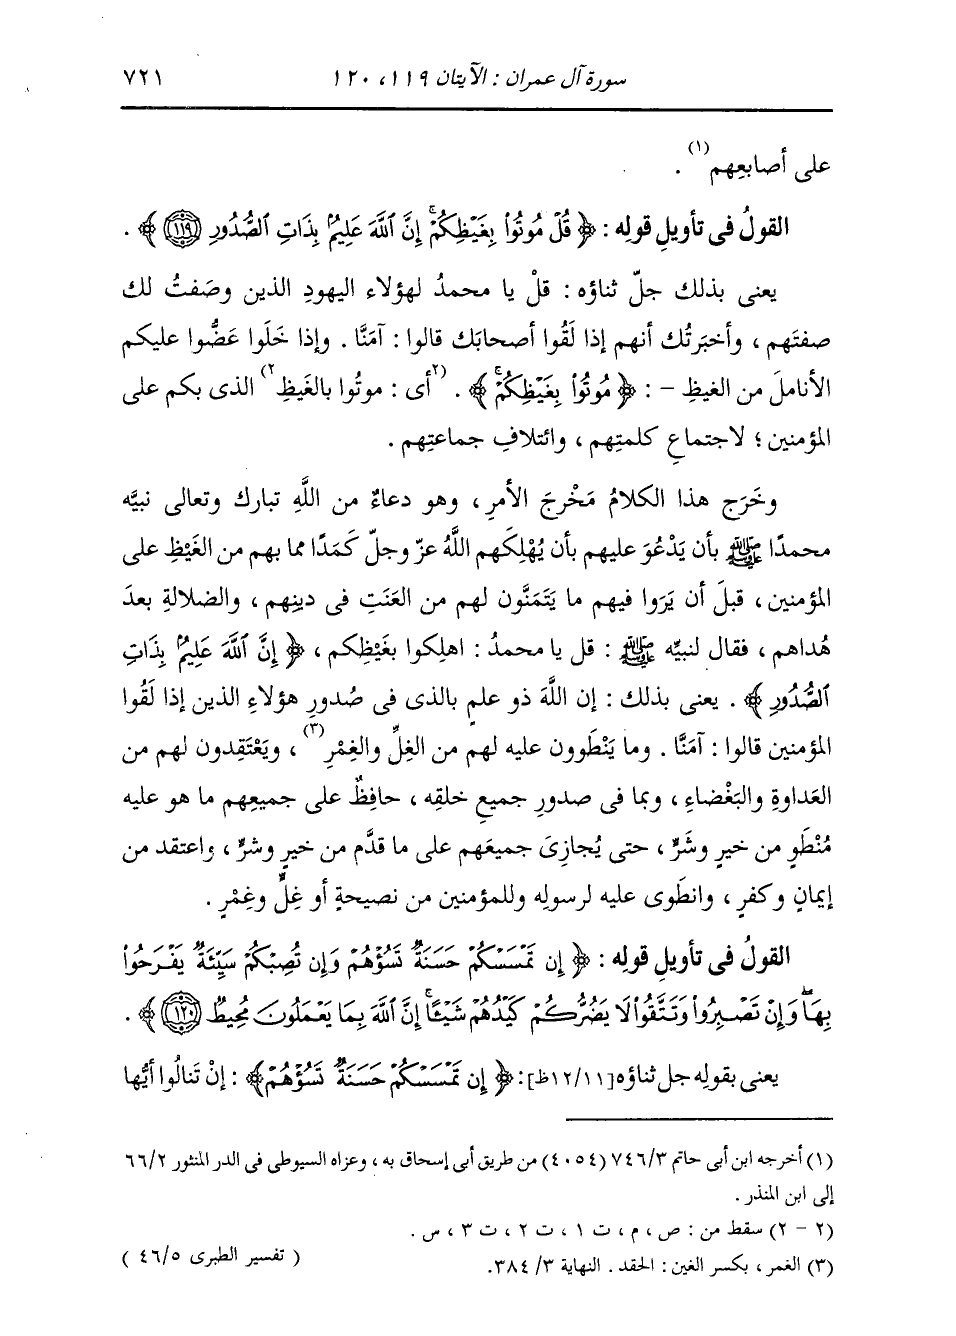 سورة آل عمران : الآيتان ١١٩ ، ١٢٠ ٧٢١
على أصابعِهم(١) .
القولُ فى تأويلِ قولِه : ﴿ قُلْ مُوتُوا۟ بِغَيْظِكُمْ ۗ إِنَّ ٱللَّهَ عَلِيمٌۢ بِذَاتِ ٱلصُّدُورِ ﴿١١٩﴾ ﴾ .
يعنى بذلك جلّ ثناؤه : قلْ يا محمدُ لهؤلاء اليهودِ الذين وصَفتُ لك
صفتَهم ، وأخبَرتُك أنهم إذا لَقُوا أصحابَك قالوا : آمَنَّا . وإذا خَلَوا عَضُّوا عليكم
الأناملَ من الغيظِ - : ﴿ مُوتُوا۟ بِغَيْظِكُمْ ۗ ﴾ . (٢أى : موتُوا بالغَيظِ٢) الذى بكم على
المؤمنين ؛ لاجتماعِ كلمتِهم ، وائتلافِ جماعتِهم .
وخَرَج هذا الكلامُ مَخْرجَ الأمرِ ، وهو دعاءٌ من اللَّهِ تبارك وتعالى نبيَّه
محمدًا ﷺ بأن يَدْعُوَ عليهم بأن يُهْلِكَهم اللَّهُ عزّ وجلّ كَمَدًا مما بهم من الغَيْظِ على
المؤمنين ، قبلَ أن يَرَوا فيهم ما يَتَمَنَّون لهم من العَنَتِ فى دينِهم ، والضلالةِ بعدَ
هُداهم ، فقال لنبيِّه ﷺ : قل يا محمدُ : اهلِكوا بغَيْظِكم ، ﴿ إِنَّ ٱللَّهَ عَلِيمٌۢ بِذَاتِ
ٱلصُّدُورِ ﴾ . يعنى بذلك : إن اللَّهَ ذو علمٍ بالذى فى صُدورِ هؤلاءِ الذين إذا لَقُوا
المؤمنين قالوا : آمَنَّا . وما يَنْطَوون عليه لهم من الغِلِّ والغِمْرِ(٣) ، ويَعْتَقِدون لهم من
العَداوةِ والبَغْضاءِ ، وبما فى صدورِ جميعِ خلقِه ، حافِظٌ على جميعِهم ما هو عليه
مُنْطَوٍ من خيرٍ وشَرٍّ ، حتى يُجازِىَ جميعَهم على ما قدَّم من خيرٍ وشرٍّ ، واعتقد من
إيمانٍ وكفرٍ ، وانطَوى عليه لرسولِه وللمؤمنين من نصيحةٍ أو غِلٍّ وغِمْرٍ .
القولُ فى تأويلِ قولِه : ﴿ إِن تَمْسَسْكُمْ حَسَنَةٌ تَسُؤْهُمْ وَإِن تُصِبْكُمْ سَيِّئَةٌ يَفْرَحُوا۟
بِهَا ۖ وَإِن تَصْبِرُوا۟ وَتَتَّقُوا۟ لَا يَضُرُّكُمْ كَيْدُهُمْ شَيْـًٔا ۗ إِنَّ ٱللَّهَ بِمَا يَعْمَلُونَ مُحِيطٌ ﴿١٢٠﴾ ﴾ .
يعنى بقولِه جل ثناؤه [١٢/١١ظ] : ﴿ إِن تَمْسَسْكُمْ حَسَنَةٌ تَسُؤْهُمْ ﴾ : إنْ تَنالُوا أيُّها
(١) أخرجه ابن أبى حاتم ٧٤٦/٣ (٤٠٥٤) من طريق أبى إسحاق به ، وعزاه السيوطى فى الدر المنثور ٦٦/٢
إلى ابن المنذر .
(٢ - ٢) سقط من : ص ، م ، ت ١ ، ت ٢ ، ت ٣ ، س .
(٣) الغمر ، بكسر الغين : الحقد . النهاية ٣/ ٣٨٤.
( تفسير الطبرى ٤٦/٥ )